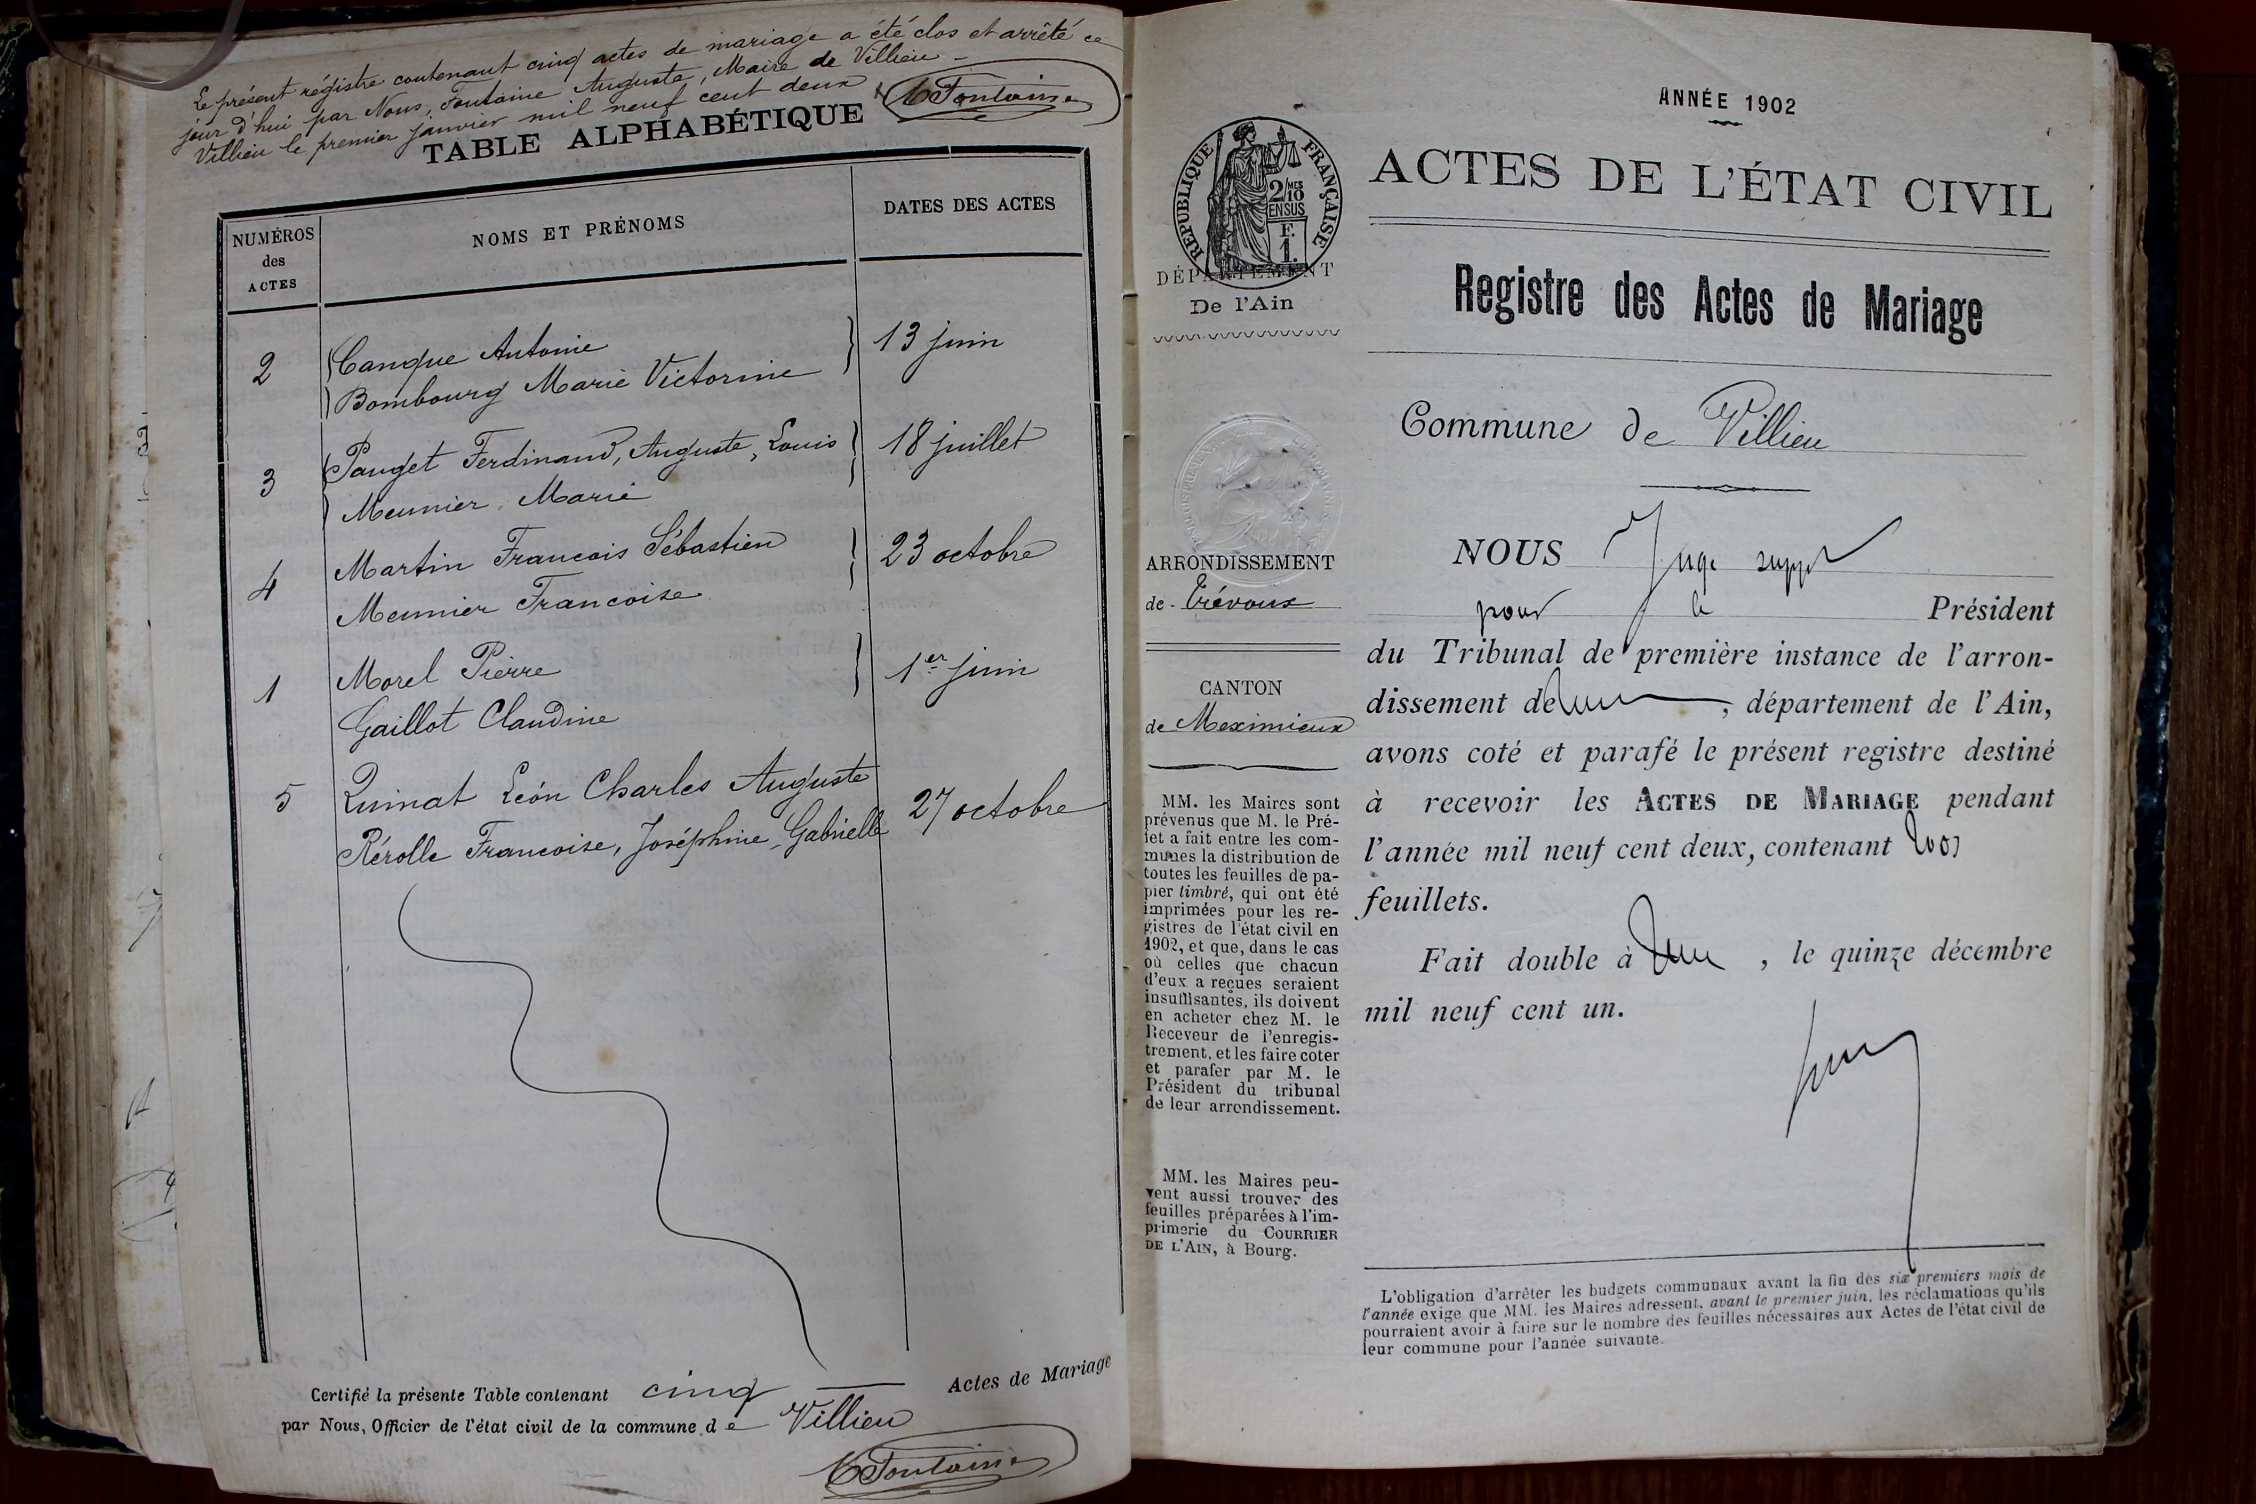 Le présent régistre contenant cinq actes de mariage a été clos et arrêté ce
jour d'hui par Nous, Fontaine Auguste, Maire de Villieu -
Villieu le premier janvier mil neuf cent deux
Fontaine
TABLE ALPHABÉTIQUE
NUMÉROS
des
ACTES
NOMS ET PRÉNOMS
DATES DES ACTES
2 Canque Antoine 13 juin
Bombourg Marie Victorine
3 Pauget Ferdinand, Auguste, Louis 18 juillet
Meunier Marie
4 Martin Francois Sébastien 23 octobre
Meunier Francoise
1 Morel Pierre 1er juin
Gaillot Claudine
5 Quinat Léon Charles Auguste 27 octobre
Rérolle Francoise, Joséphine, Gabrielle
Certifié la présente Table contenant cinq Actes de Mariage
par Nous, Officier de l'état civil de la commune de Villieu
Fontaine
ANNÉE 1902
RÉPUBLIQUE FRANÇAISE
2/MES
10
EN SUS
F.
1.
DÉPARTEMENT
De l'Ain
ARRONDISSEMENT
de Trévoux
CANTON
de Meximieux
MM. les Maires sont
prévenus que M. le Pré-
fet a fait entre les com-
munes la distribution de
toutes les feuilles de pa-
pier timbré, qui ont été
imprimées pour les re-
gistres de l'état civil en
1902, et que, dans le cas
où celles que chacun
d'eux a reçues seraient
insuffisantes, ils doivent
en acheter chez M. le
Receveur de l'enregis-
trement, et les faire coter
et parafer par M. le
Président du tribunal
de leur arrondissement.
MM. les Maires peu-
vent aussi trouver des
feuilles préparées à l'im-
primerie du COURRIER
DE L'AIN, à Bourg.
ACTES DE L'ÉTAT CIVIL
Registre des Actes de Mariage
Commune de Villieu
NOUS Juge suppt
pour le Président
du Tribunal de première instance de l'arron-
dissement de , département de l'Ain,
avons coté et parafé le présent registre destiné
à recevoir les ACTES DE MARIAGE pendant
l'année mil neuf cent deux, contenant
feuillets.
Fait double à , le quinze décembre
mil neuf cent un.
L'obligation d'arrêter les budgets communaux avant la fin des six premiers mois de
l'année exige que MM. les Maires adressent, avant le premier juin, les réclamations qu'ils
pourraient avoir à faire sur le nombre des feuilles nécessaires aux Actes de l'état civil de
leur commune pour l'année suivante.